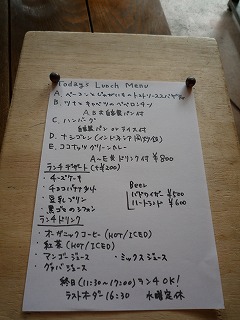 Todays Lunch Menu
A. ベーコンとじゃがいものトマトソーススパゲティ
B. ツナとキャベツのペペロンチーノ
A.B共自家製パン付
C. ハンバーグ
自家製パン or ライス付
D. ナシゴレン(インドネシア風炒飯)
E. ココナッツグリーンカレー
A〜E共ドリンク付 ¥800
ランチデザート(+¥200)
・チーズケーキ
・チョコバナナタルト
・豆乳プリン
・黒ゴマのシフォン
Beer
バドワイザー ¥500
ハートランド ¥600
ランチドリンク
・オーガニックコーヒー(HOT/ICED)
・紅茶(HOT/ICED)
・マンゴージュース ・ミックスジュース
・グァバジュース
終日(11:30〜17:00)ランチOK!
ラストオーダー16:30 水曜定休